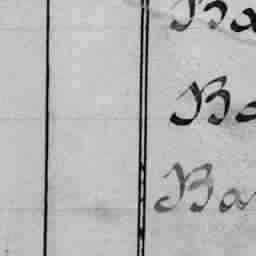 Ba
Ba
Ba